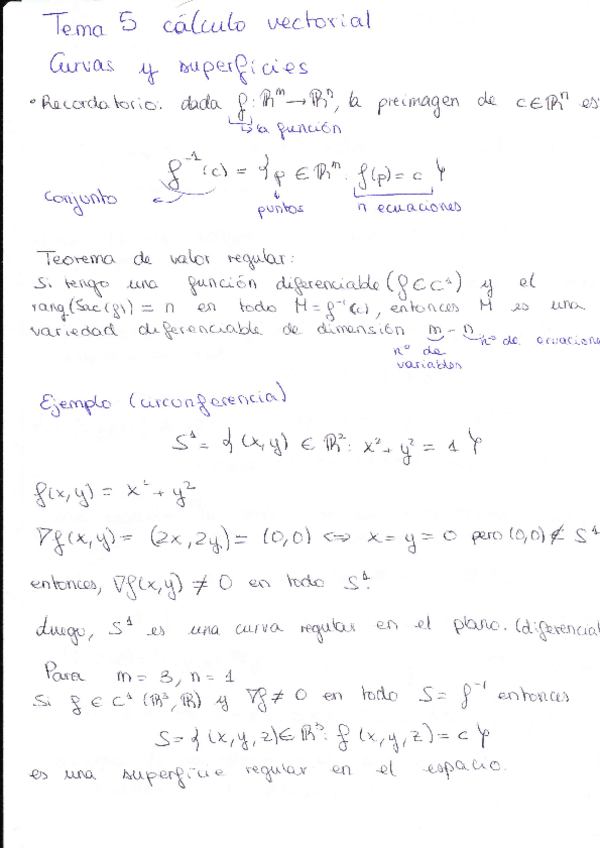 Tema 5 cálculo vectorial
Curvas y superficies
• Recordatorio: dada f: ℝᵐ → ℝⁿ, la preimagen de c ∈ ℝⁿ es
la función
f⁻¹(c) = { p ∈ ℝᵐ: f(p) = c }
conjunto puntos n ecuaciones
Teorema de valor regular:
Si tengo una función diferenciable (f ∈ C¹) y el
rang(Jac(f)) = n en todo M = f⁻¹(c), entonces M es una
variedad diferenciable de dimensión m - n
nº de variables nº de ecuacione
Ejemplo (circonferencia)
S¹ = { (x,y) ∈ ℝ²: x² + y² = 1 }
f(x,y) = x² + y²
∇f(x,y) = (2x, 2y) = (0,0) ⇔ x = y = 0 pero (0,0) ∉ S¹
entonces, ∇f(x,y) ≠ 0 en todo S¹.
Luego, S¹ es una curva regular en el plano. (diferencial
Para m = 3, n = 1
Si f ∈ C¹(ℝ³, ℝ) y ∇f ≠ 0 en todo S = f⁻¹ entonces
S = { (x,y,z) ∈ ℝ³: f(x,y,z) = c }
es una superficie regular en el espacio.